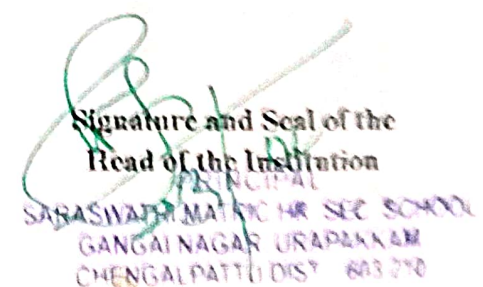 Signature and Seal of the
Head of the Institution
PRINCIPAL
SARASWATHI MATRIC HR SEC SCHOOL
GANGAI NAGAR URAPAKKAM
CHENGALPATTU DIST 603 210